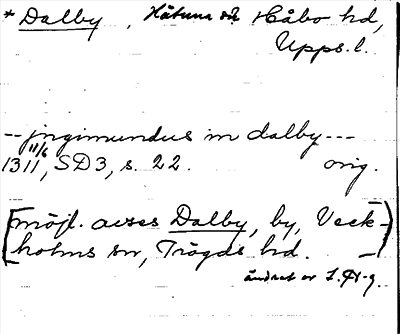 * Dalby, Håtuna sn Håbo hd,
Upps. l.
-- jngimundus in dalby ---
1311 11/6, SD3, s. 22. orig.
[möjl. avses Dalby, by, Veck-
holms sn, Trögds hd. —]
ändrat av